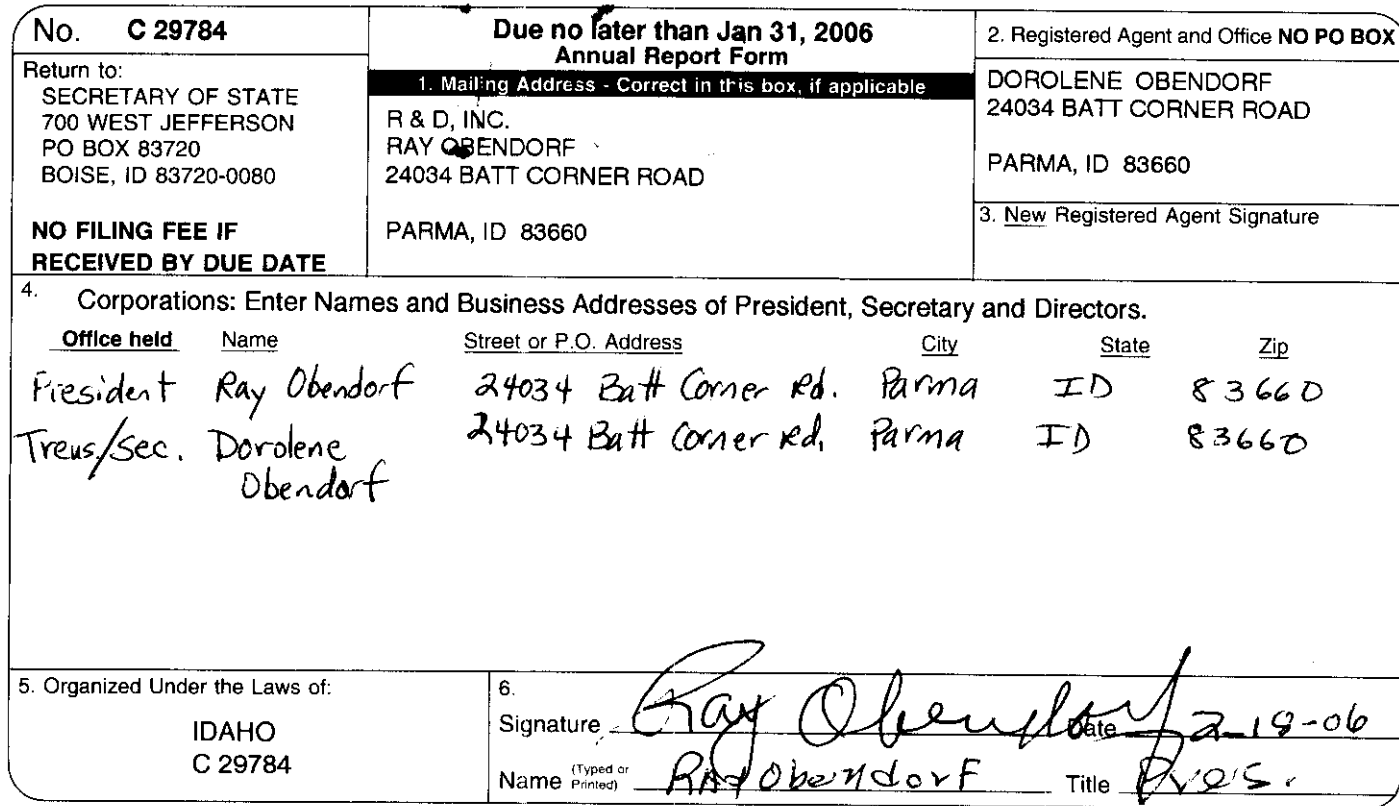 No. C 29784
Return to:
SECRETARY OF STATE
700 WEST JEFFERSON
PO BOX 83720
BOISE, ID 83720-0080
NO FILING FEE IF
RECEIVED BY DUE DATE
Due no later than Jan 31, 2006
Annual Report Form
1. Mailing Address - Correct in this box, if applicable
R & D, INC.
RAY OBENDORF
24034 BATT CORNER ROAD
PARMA, ID 83660
2. Registered Agent and Office NO PO BOX
DOROLENE OBENDORF
24034 BATT CORNER ROAD
PARMA, ID 83660
3. New Registered Agent Signature
4. Corporations: Enter Names and Business Addresses of President, Secretary and Directors.
Office held Name Street or P.O. Address City State Zip
President Ray Obendorf 24034 Batt Corner Rd. Parma ID 83660
Treas/Sec. Dorolene 24034 Batt Corner Rd. Parma ID 83660
Obendorf
5. Organized Under the Laws of:
IDAHO
C 29784
6.
Signature Ray Obendorf Date 2-18-06
Name (Typed or Printed) RAY Obendorf Title Pres.